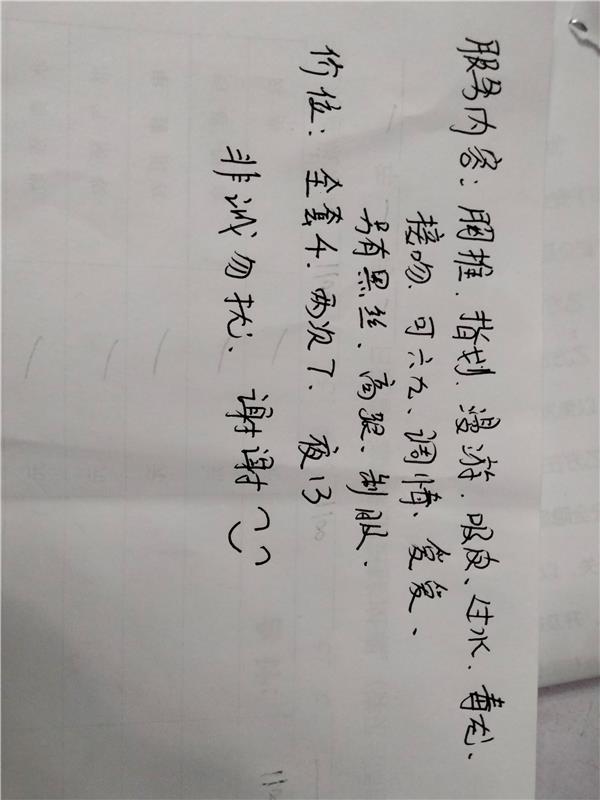 服务内容：胸推、指划、漫游、吸皮、过水、毒龙、
接吻、可六九、调情、爰爰、
另有黑丝、高跟、制服、
价位：全套4、两次7、夜13
非诚勿扰、谢谢